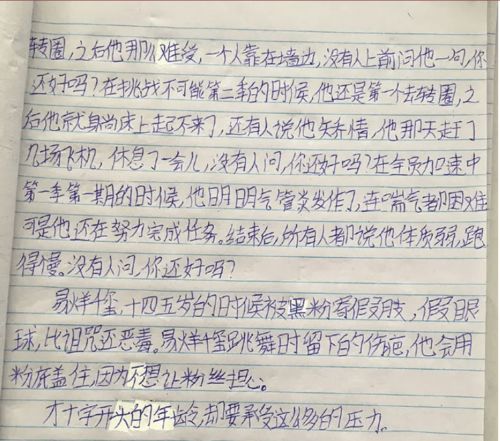 转圈,之后他那么难受,一个人靠在墙边,没有人上前问他一句,你
还好吗?在挑战不可能第二季的时候,他还是第一个去转圈,之
后他就身尚床上起不来了,还有人说他矫情,他那天赶了
几场飞机,休息了一会儿,没有人问,你还好吗?在全员加速中
第一季第一期的时候,他明明气管炎发作了,连喘气都困难
可是他还在努力完成任务。结束后,所有人都说他体质弱,跑
得慢。没有人问,你还好吗?
易烊千玺,十四五岁的时候被黑粉寄假肢,假眼
球,比诅咒还恶毒。易烊千玺跳舞时留下的伤疤,他会用
粉底盖住,因为不想让粉丝担心。
才十字开头的年龄,却要承受这么多的压力。